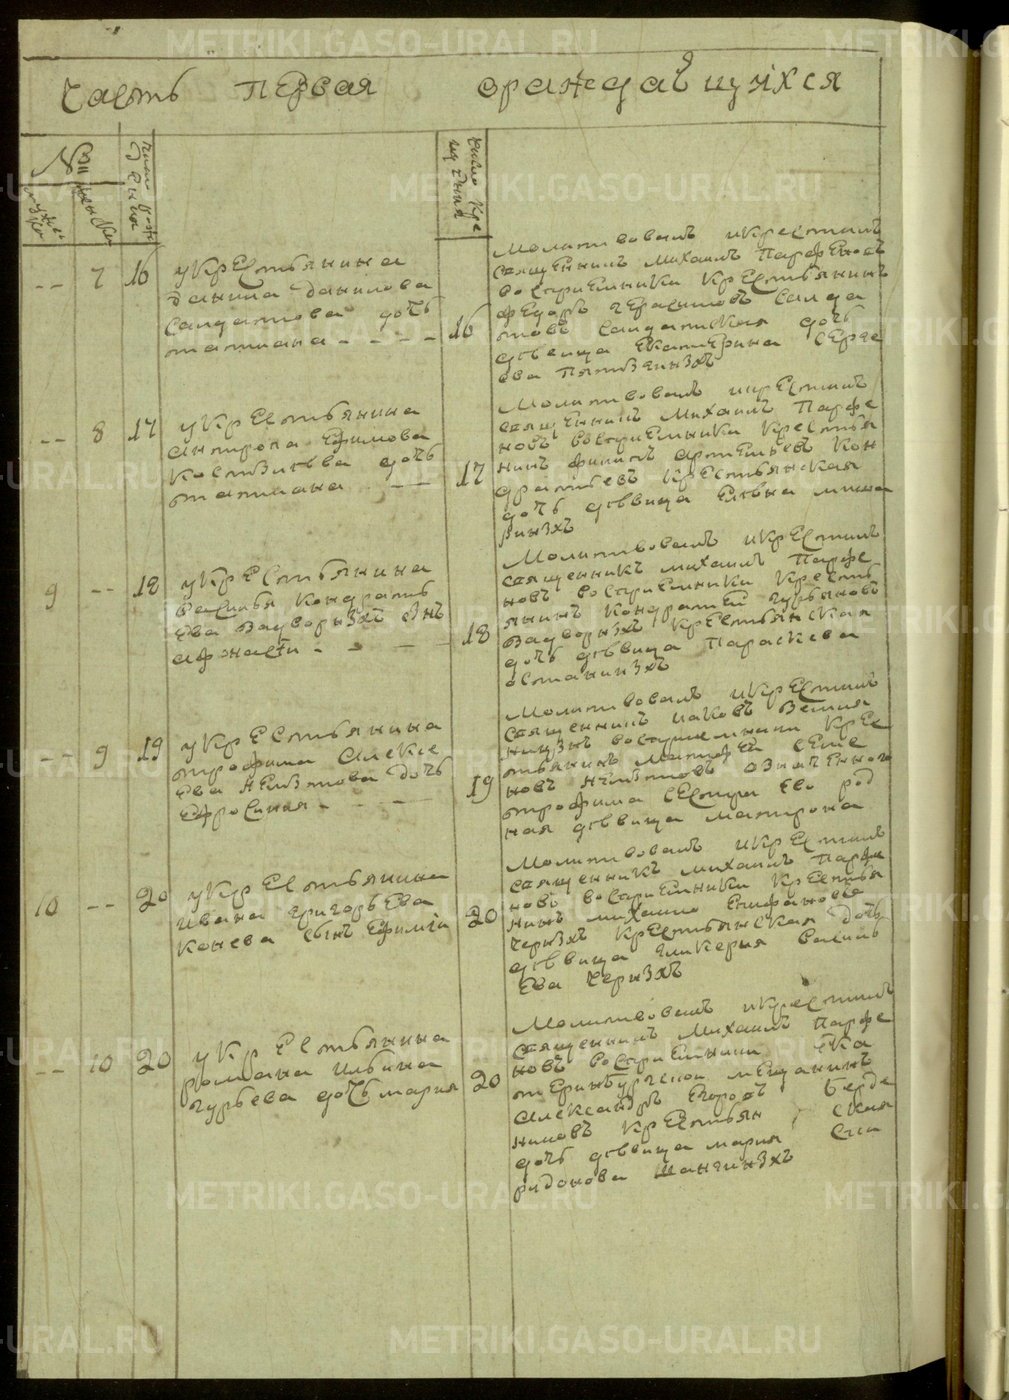 часть первая ораждающихся
№
мужес
женска
число рож
дения
число кре
щения
-- 7 16
у крестьянина
данила данилова
салдатова дочь
татиана - - - -
16
молитвовалъ икрестилъ
священникъ михаилъ Парфеновъ
восприемники крестьянинъ
федоръ герасимовъ салда
товъ салдатская дочь
девица екатерина сергее
ва
-- 8 17
у крестьянина
антропа ефимова
дочь
татиана - --
17
молитвовалъ икрестилъ
священникъ михаилъ Парфе
новъ восприемники крестья
нинъ филипъ артемьевъ кон
дратьевъ крестьянская
дочь девица
9 -- 18
у крестьянина
василья кондрать
ева задворныхъ сынъ
- - - -
18
молитвовалъ икрестилъ
священникъ михаилъ Парфе
новъ восприемники кресть
янинъ кондратей гурьяновъ
задворныхъ крестьянская
дочь девица Параскева
останиныхъ
-- 9 19
у крестьянина
трофима алексе
ева дочь
Ефросиния - - -
19
молитвовалъ икрестилъ
священникъ иаковъ
восприемники кре
стьянинъ матфей семе
новъ означенного
трофима сестра ево род
ная девица матрона
10 -- 20
у крестьянина
ивана григорьева
конева сынъ ефимий
20
молитвовалъ икрестилъ
священникъ михаилъ Парфе
новъ восприемники крестья
нинъ михаило епифановъ
черныхъ крестьянская дочь
девица гликерия василь
ева черныхъ
-- 10 20
у крестьянина
романа ильина
гурьева дочь мария
20
молитвовалъ икрестилъ
священникъ михаилъ Парфе
новъ восприемники ека
теринбургской мещанинъ
александръ егоровъ берде
никовъ крестьян ская
дочь девица мария спи
ридонова шангиныхъ
METRIKI.GASO-URAL.RU